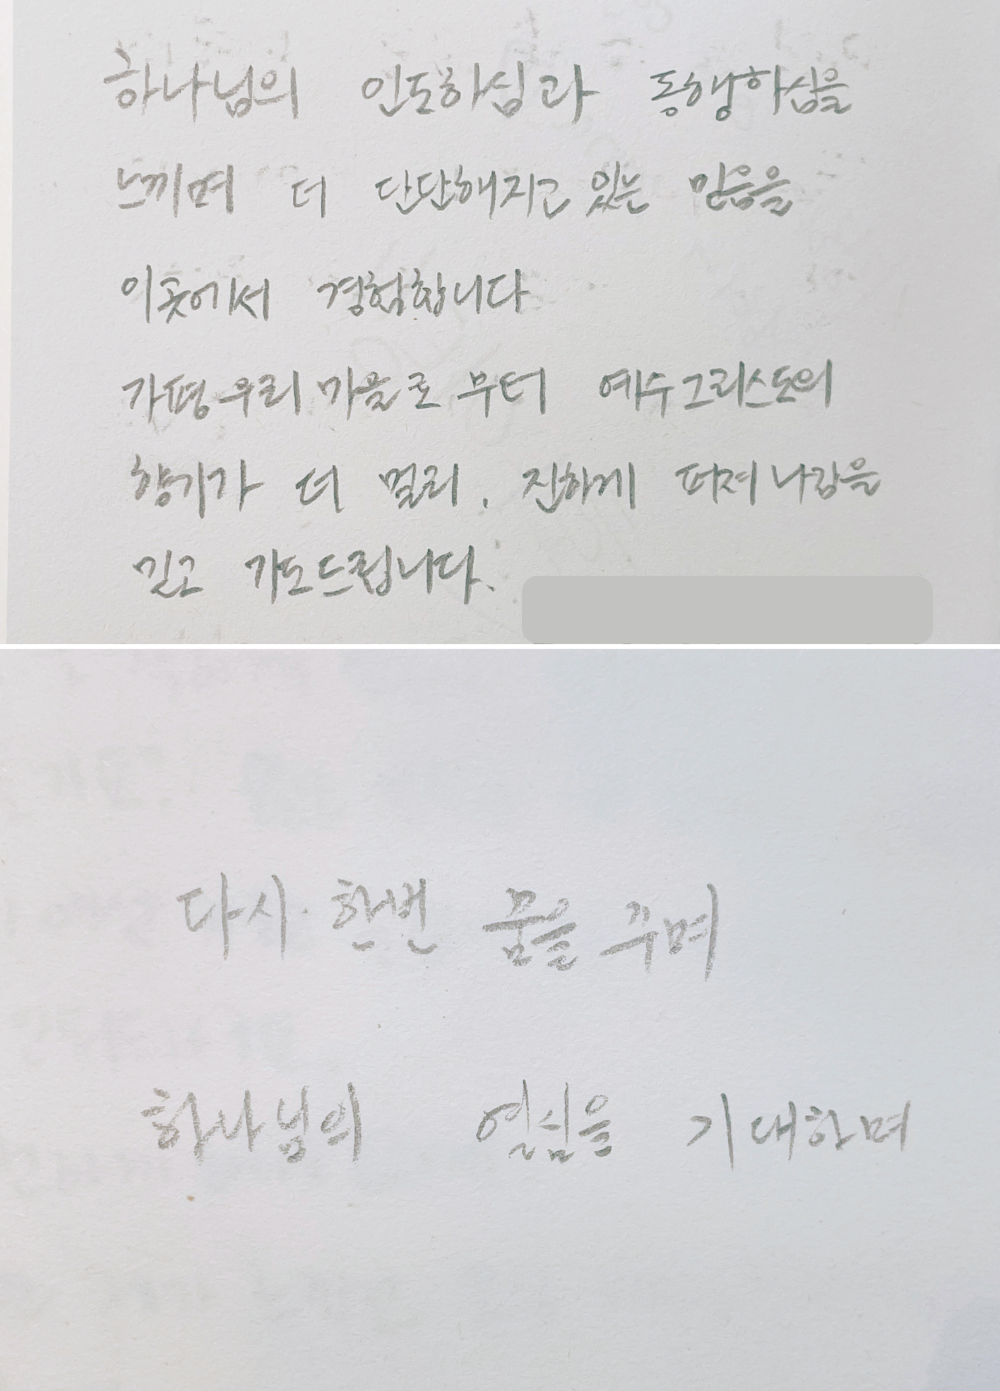 하나님의 인도하심과 동행하심을
느끼며 더 단단해지고 있는 믿음을
이곳에서 경험합니다
가평우리마을로 부터 예수그리스도의
향기가 더 멀리, 진하게 퍼져나감을
믿고 기도드립니다.
다시 한번 꿈을 꾸며
하나님의 열심을 기대하며